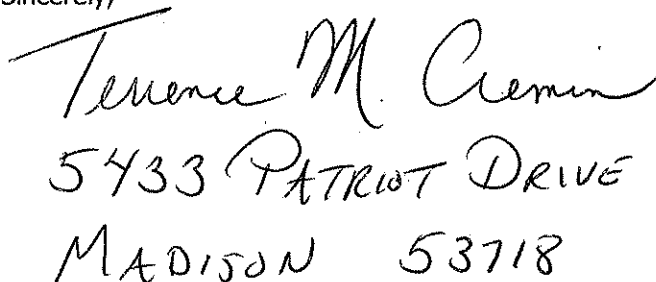 Sincerely,
Terrence M. Cremin
5433 PATRIOT DRIVE
MADISON 53718